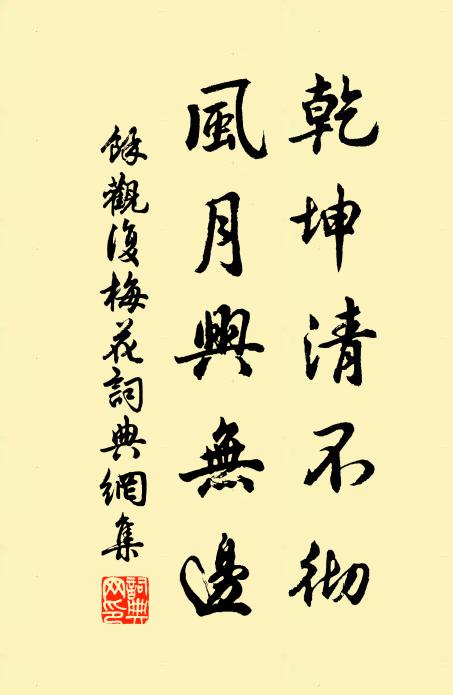 乾坤清不彻
風月興無邊
餘觀復梅花詞典網集
詞典網印